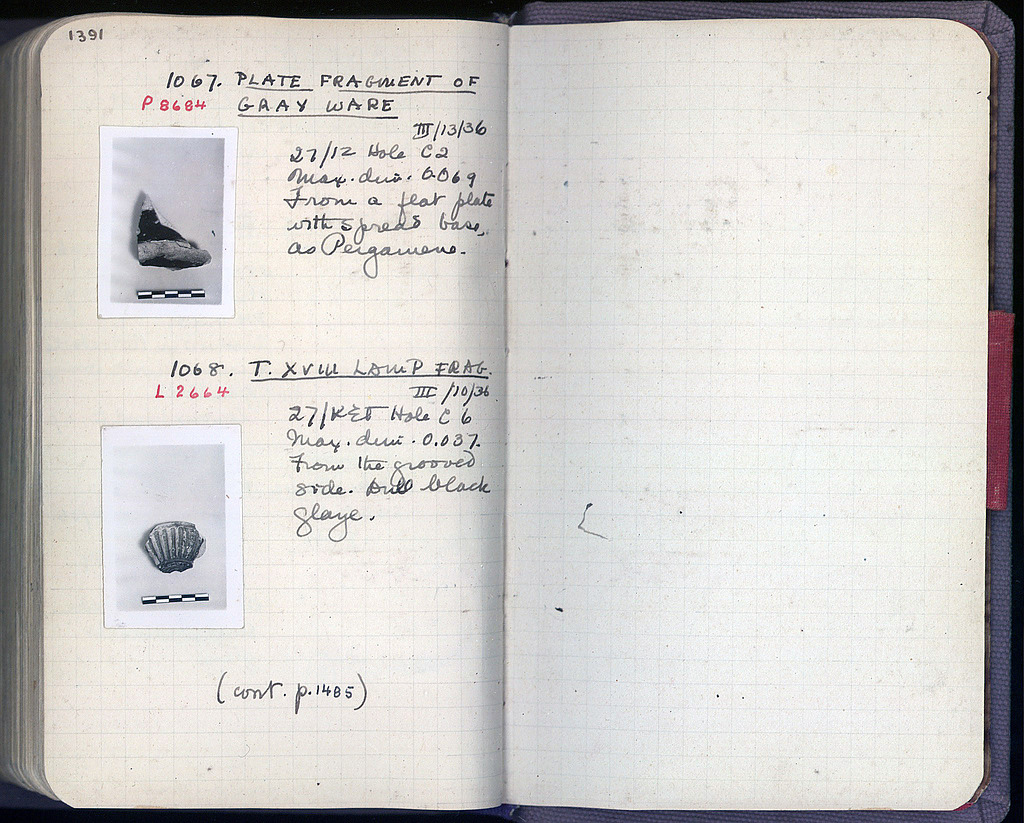 1391
1067. PLATE FRAGMENT OF
P 8684 GRAY WARE
III/13/36
27/12 Hole C2
Max. dim. 0.069
From a flat plate
with spread base,
as Pergamene.
1068. T. XVIII LAMP FRAG.
L 2664 III/10/36
27/ Hole C 6
Max. dim. 0.037.
From the grooved
side. Dull black
glaze.
(cont. p. 1485)